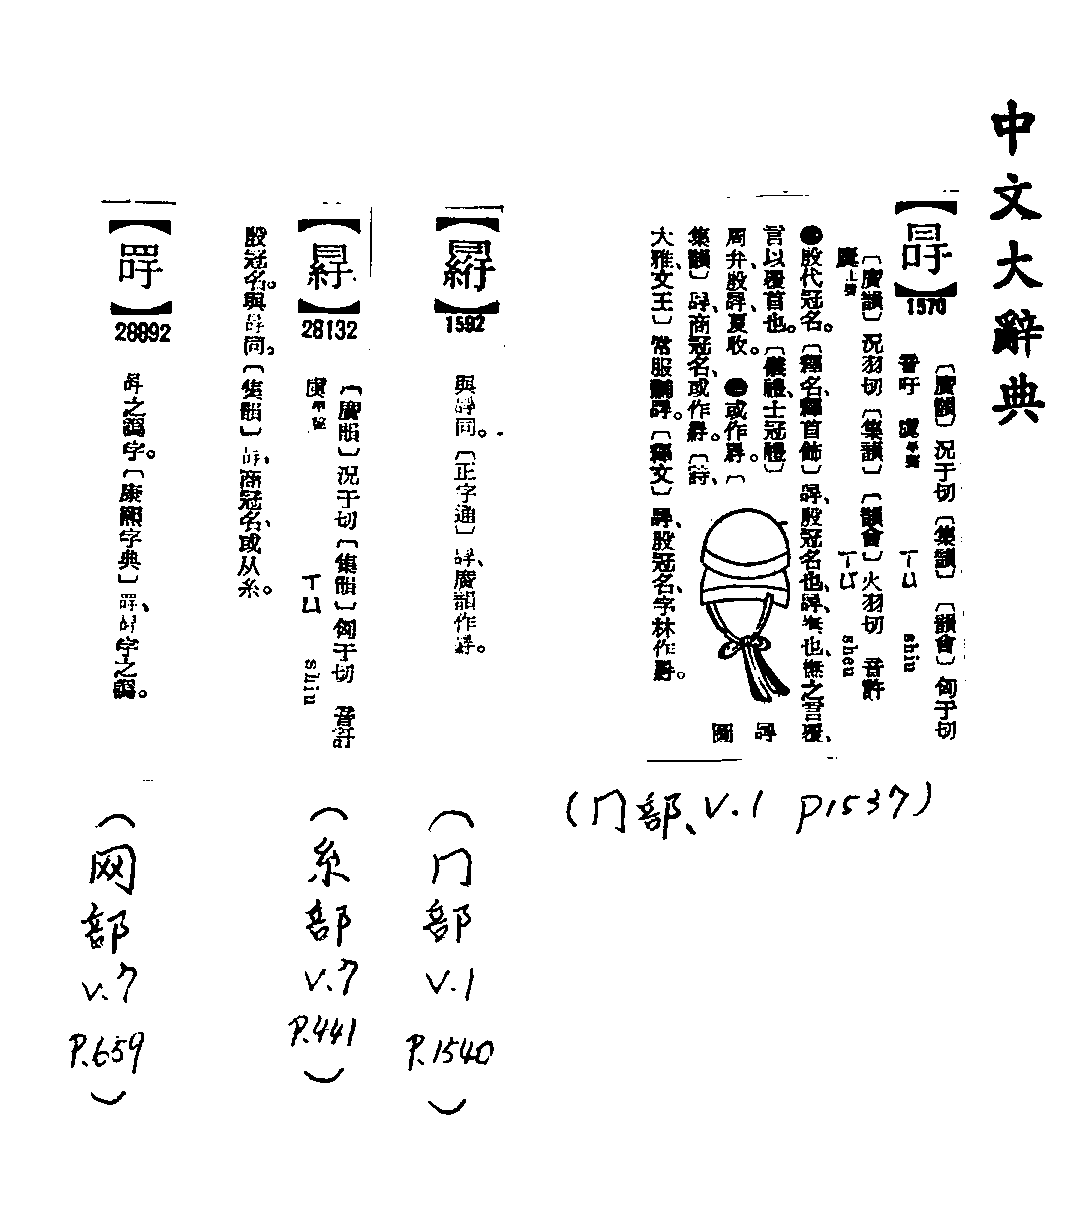 中文大辭典
【冔】
1570
〔廣韻〕况于切〔集韻〕〔韻會〕匈于切
音吁 虞平聲 ㄒㄩ shiu
〔廣韻〕况羽切〔集韻〕〔韻會〕火羽切 音許
麌上聲 ㄒㄩˇ sheu
㊀殷代冠名。〔釋名、釋首飾〕冔、殷冠名也、冔、幠也、幠之言覆、
言以覆首也。〔儀禮、士冠禮〕
周弁、殷冔、夏收。㊁或作。〔
集韻〕冔、商冠名、或作。〔詩、
大雅、文王〕常服黼冔。〔釋文〕冔、殷冠名、字林作。
冔圖
(冂部、V.1 P1537)
【】
1592
與冔同。〔正字通〕冔、廣韻作。
(冂部 V.1 P.1540)
【】
28132
〔廣韻〕况于切〔集韻〕匈于切 音訏
虞平聲 ㄒㄩ shiu
殷冠名。與冔同。〔集韻〕冔、商冠名、或从糸。
(糸部 V.7 P.441)
【】
28892
冔之譌字。〔康熙字典〕、冔字之譌。
(网部 V.7 P.659)